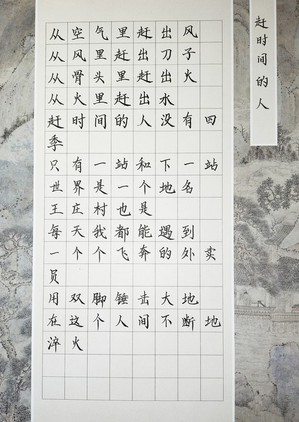 赶时间的人
从空气里赶出风
从风里赶出刀子
从骨头里赶出火
从火里赶出水
赶时间的人没有四
季
只有一站和下一站
世界是一个地名
王庄村也是
每天我都能遇到
一个个飞奔的外卖
员
用双脚锤击大地
在这个人间不断地
淬火